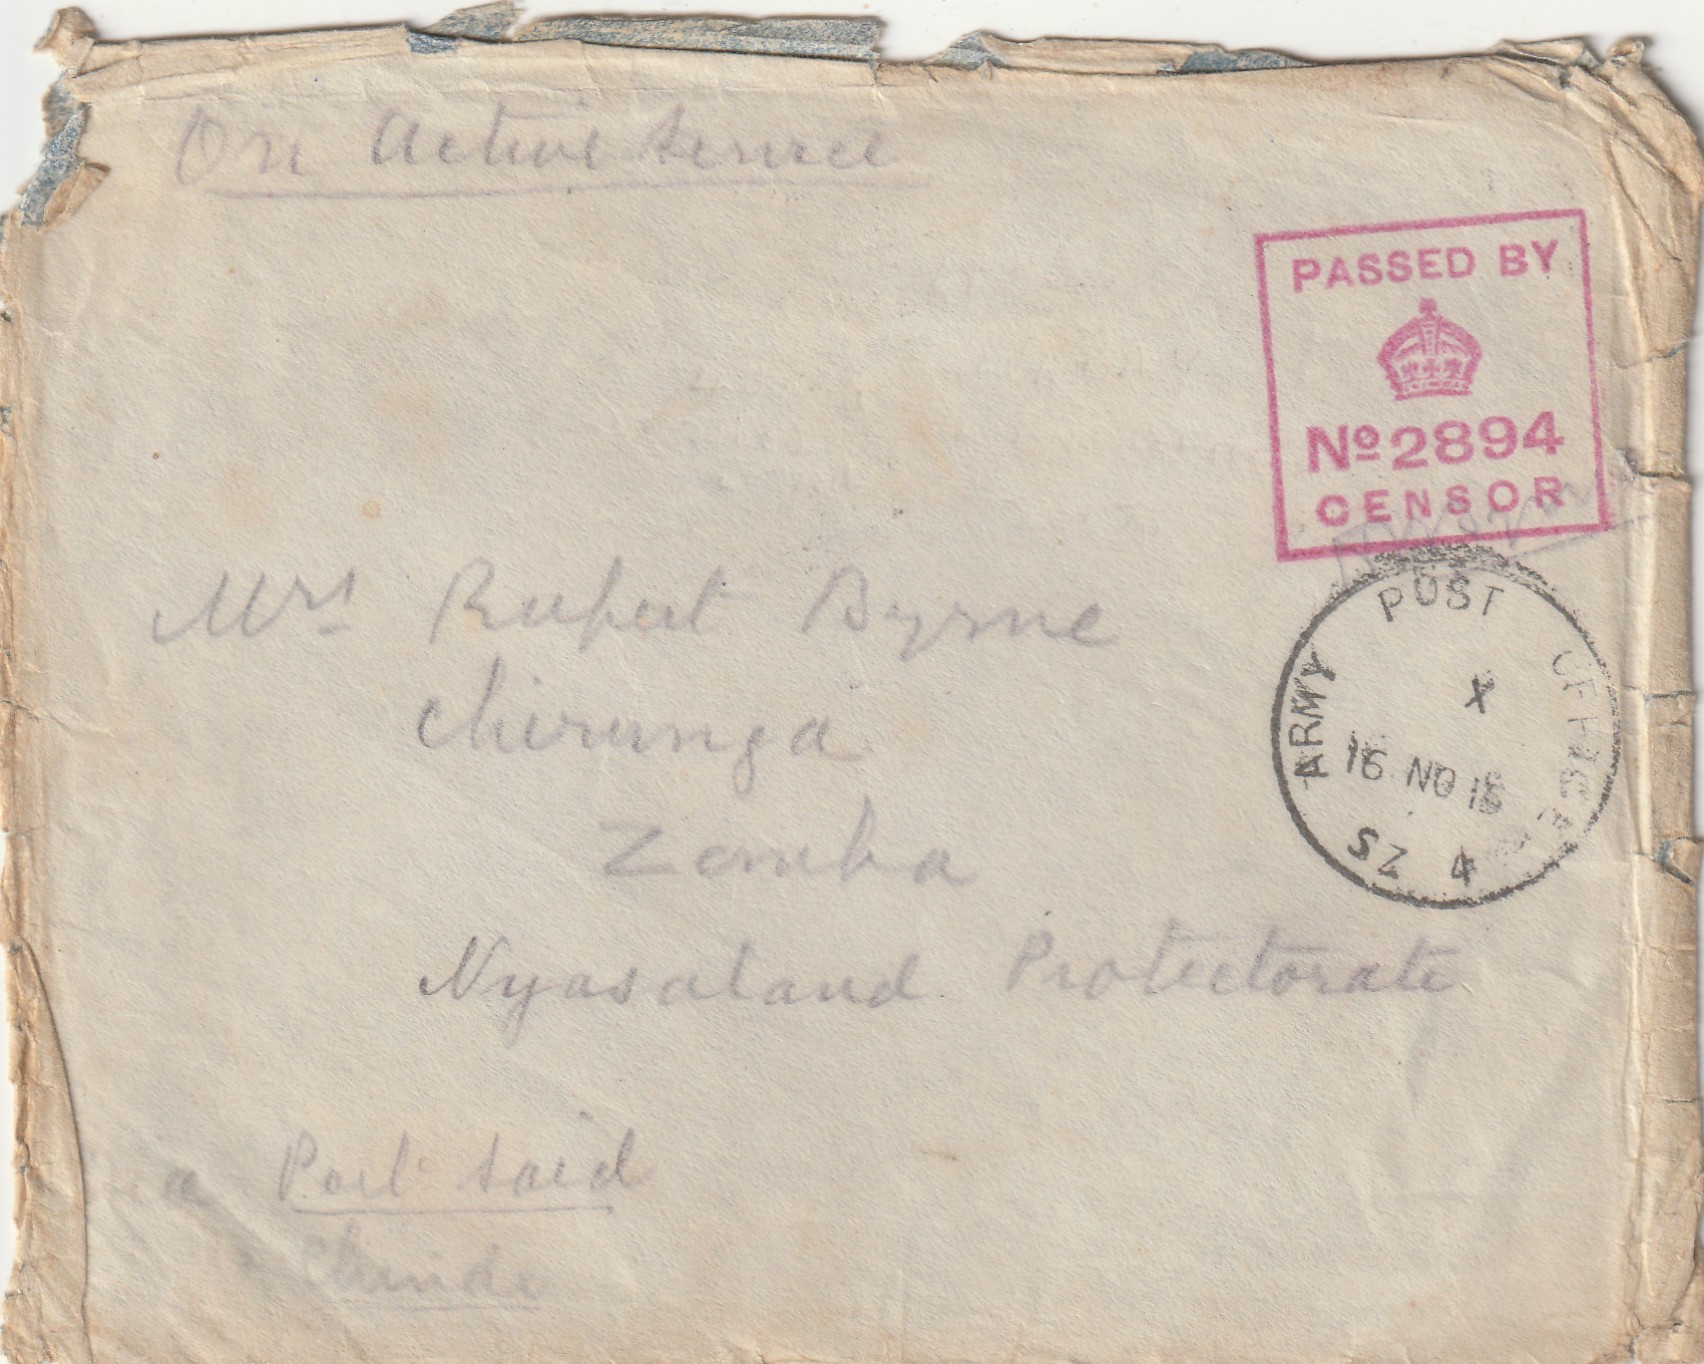 On Active Service
PASSED BY
No 2894
CENSOR
ARMY POST OFFICE
X
16 NO 16
SZ 4
Mrs Rupert Byrne
Chirunga
Zomba
Nyasaland Protectorate
Port Said
Chinde